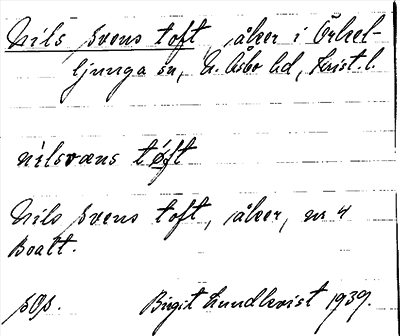 Nils Svens toft åker i Örkel-
ljunga sn, N. Åsbo hd, Krist. l.
nilsvæns tóft
Nils Svens toft, åker, nr 4
Boalt.
SOS. Birgit Lundkvist 1939.